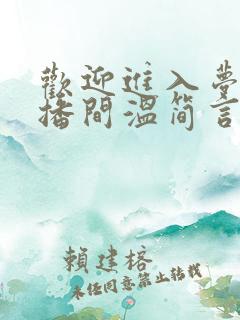 歡迎進入夢
播間溫简言
賴建榕
未任同意禁止转载